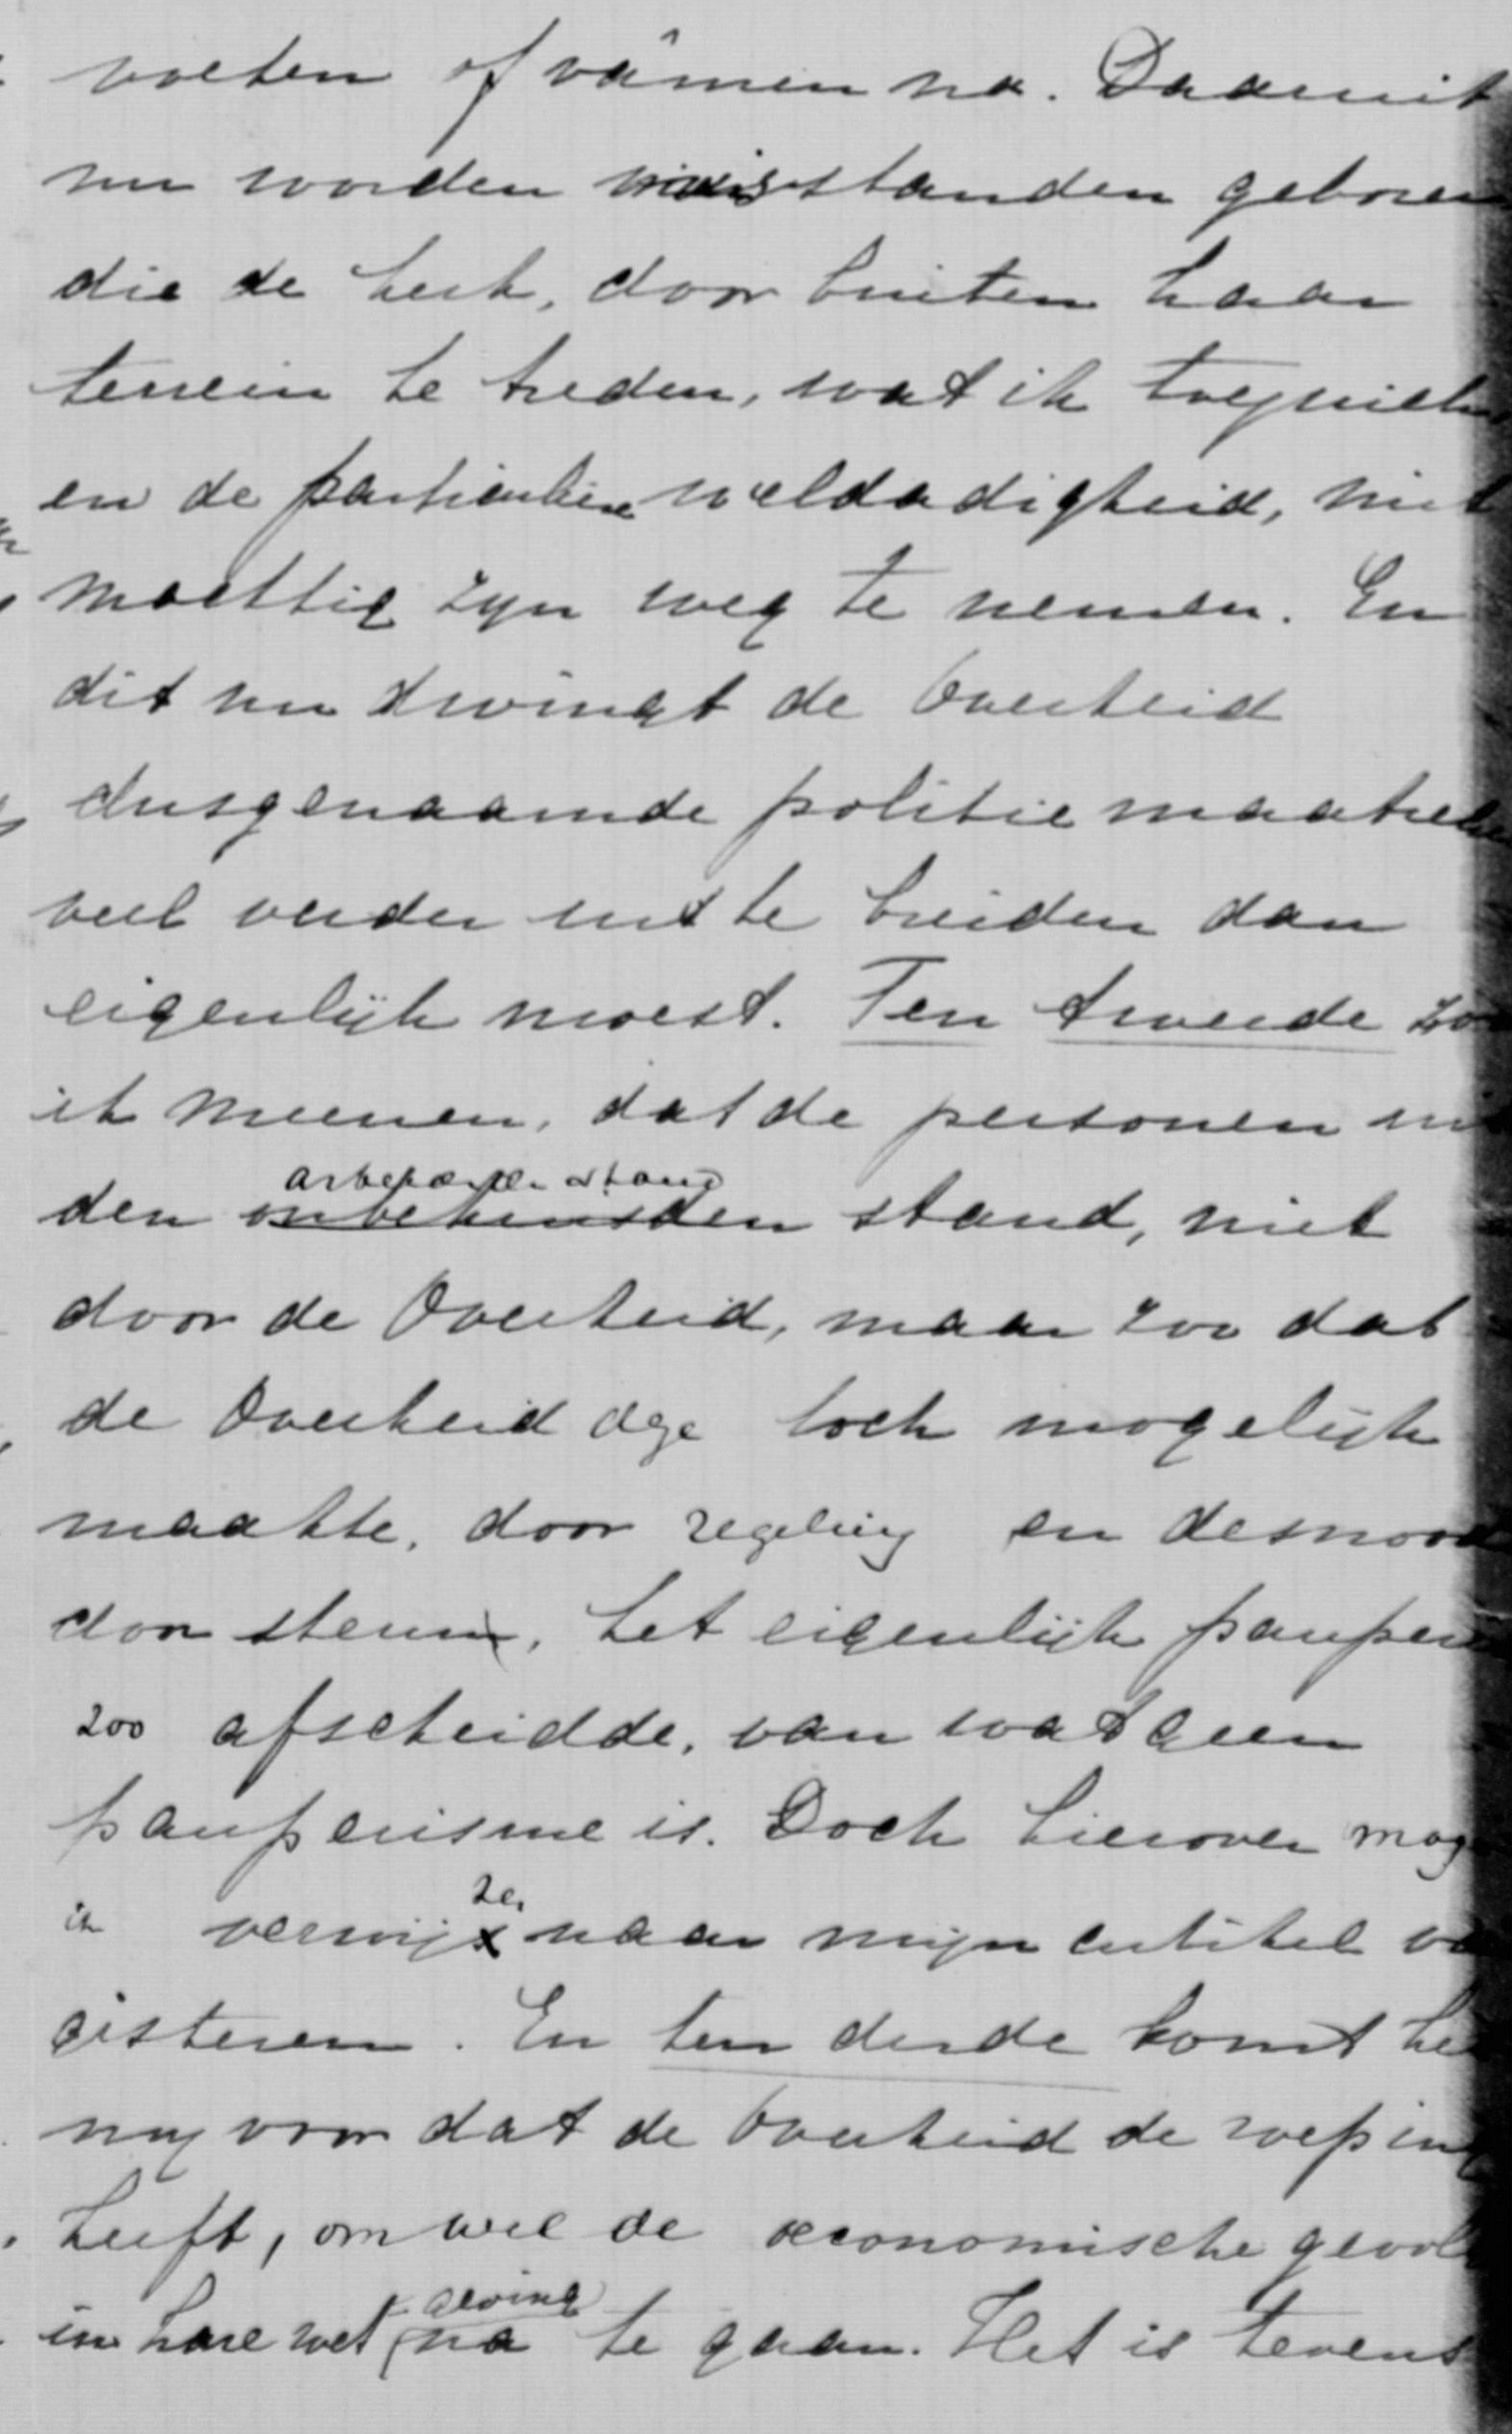 voeten of vâmen na. Daaruit
nu worden misstanden geboren
die de kerk, door buiten haar
terrein te treden, wat ik
en de particuliere weldadigheid, niet
machtig zijn weg te nemen. En
dit nu dwingt de Overheid
dusgenaamde politie maatre
veel verder uit te breiden dan
eigenlijk moest. Ten tweede zo
ik meenen, dat de personen
den stand, niet
door de Overheid, maar zoo dat
de Overheid toch mogelijk
maakte, door regeling en desnood
door steun, het eigenlijk pauper
zoo afscheidde, van wat geen
pauperisme is. Doch hierover mag
ik verwijzen naar mijn artikel v
gisteren. En ten derde komt he
mij voor dat de Overheid de roeping
heeft, om wel de economische gevol
in hare wetgeving na te gaan. Het is tevens